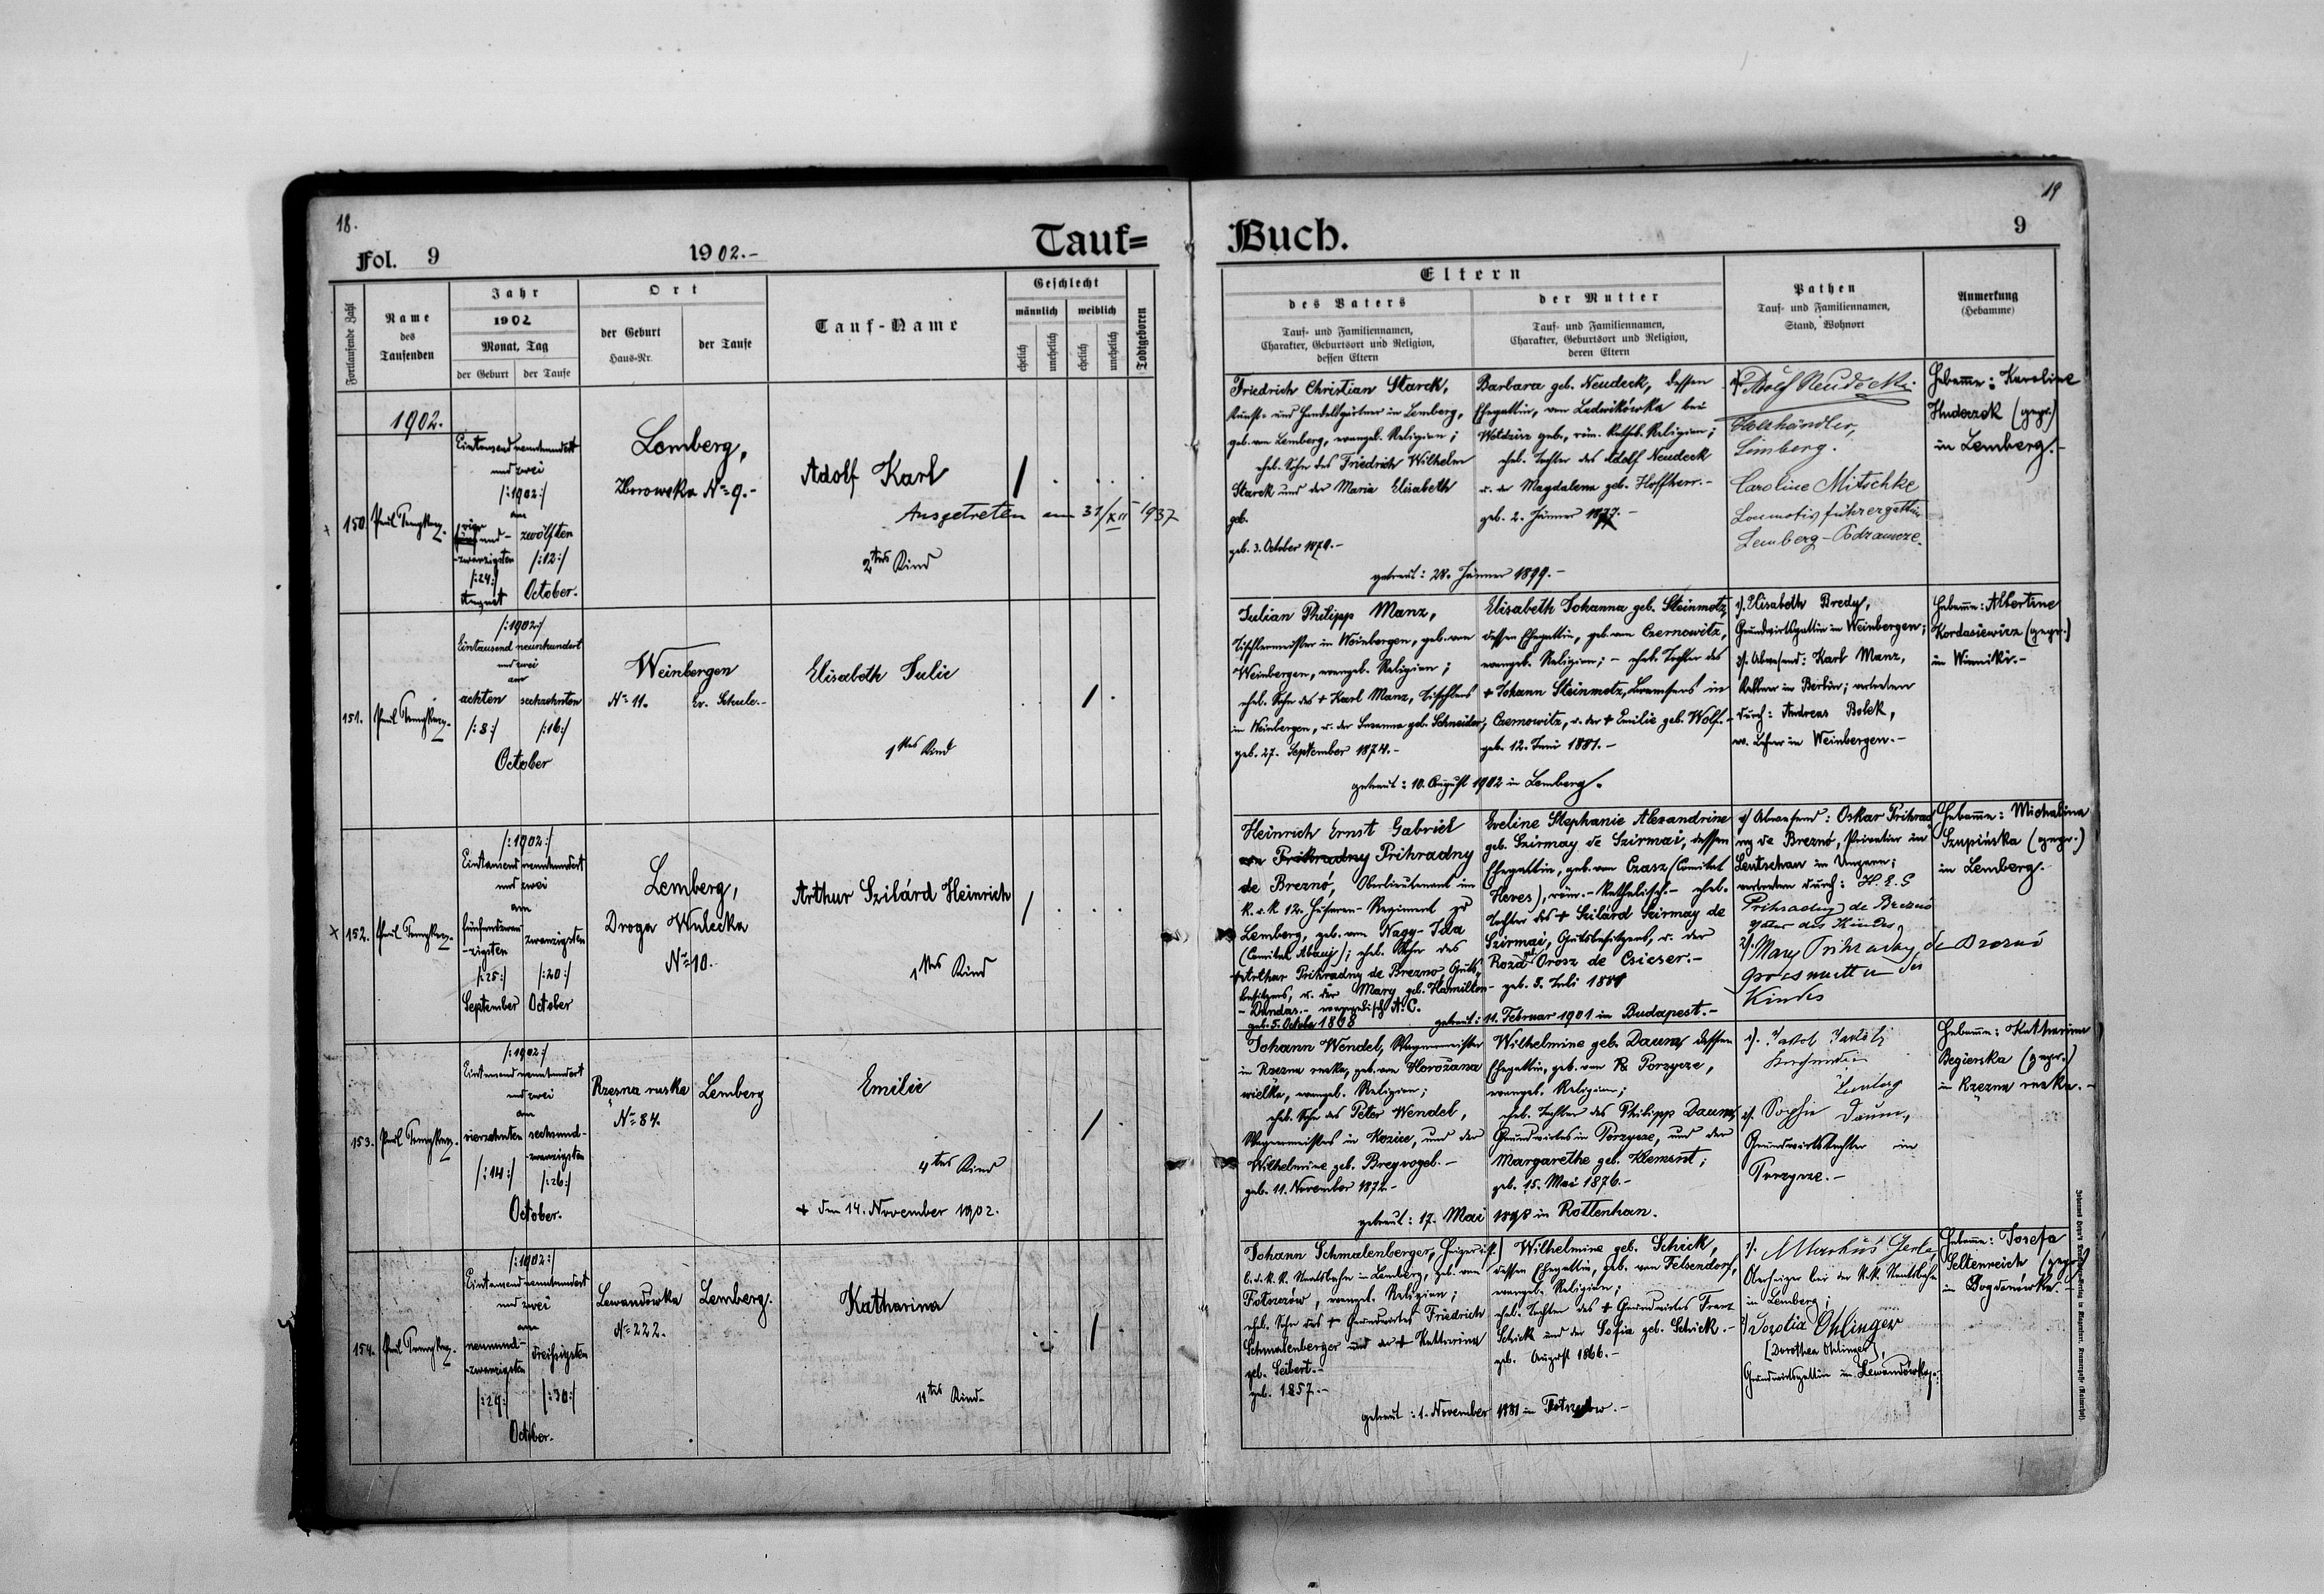 18.
Fol. 9
1902.-
Tauf=
Fortlaufende Zahl
Name
des
Taufenden
Jahr
1902
Monat, Tag
der Geburt
der Taufe
Ort
der Geburt
Haus-Nr.
der Taufe
Tauf-Name
Geschlecht
männlich
weiblich
ehelich
unehelich
ehelich
unehelich
Todtgeboren
1902.
150
Eintausend neunhundert
und zwei
/:1902:/
am
vier
und-
-zwanzigsten
/:24:/
August
zwölften
/:12:/
October.
Lemberg,
Zborowska No 9.-
Adolf Karl
Ausgetreten am 31/XII 1937
2tes Kind
151.
/:1902:/
Eintausend neunhundert
und zwei
am
achten
/:8:/
sechzehnten
/:16:/
October
Weinbergen
No 11.
Ev. Schule.-
Elisabeth Julie
1tes Kind
x 152.
/:1902:/
Eintausend neunhundert
und zwei
am
fünfundzwan-
-zigsten
/:25:/
September
zwanzigsten
/:20:/
October
Lemberg,
Droga Wulecka
No 10.
Arthur Szilárd Heinrich
1tes Kind
153.
/:1902:/
Eintausend neunhundert
und zwei
am
vierzehnten
/:14:/
sechsund-
-zwanzigsten
/:26:/
October.
Rzesna ruska
No 84.
Lemberg
Emilie
4tes Kind
+ den 14. November 1902.
154.
/:1902:/
Eintausend neunhundert
und zwei
am
neunund-
-zwanzigsten
/:29:/
dreißigsten
/:30:/
October.
Lewandówka
No 222.
Lemberg.
Katharina
11tes Kind-
19
Buch.
9
Eltern
des Vaters
Tauf- und Familiennamen,
Charakter, Geburtsort und Religion,
dessen Eltern
der Mutter
Tauf- und Familiennamen,
Charakter, Geburtsort und Religion,
deren Eltern
Pathen
Tauf- und Familiennamen,
Stand, Wohnort
Anmerkung
(Hebamme)
Friedrich Christian Starck,
Kunst- und Handelsgärtner in Lemberg,
geb. von Lemberg, evangel. Religion;
ehel. Sohn des Friedrich Wilhelm
Starck und der Maria Elisabeth
geb.
geb. 3. October 1870.-
Barbara geb. Neudeck, dessen
Ehegattin, von Ludwikówka bei
geb., röm. kathol. Religion;
ehel. Tochter des Adolf Neudeck
u. der Magdalena geb. Hoffherr.-
geb. 2. Jänner 1877.-
getraut: 28. Jänner 1899.-
Adolf Neudeck
Holzhändler,
Lemberg.
Caroline Mitschke
Locomotivführergattin
Lemberg-Podzamcze.
Hebamme: Karoline
Huderzek (gepr.)
in Lemberg.-
Julian Philipp Manz,
Tischlermeister in Weinbergen, geb. von
Weinbergen, evangel. Religion;
ehel. Sohn des + Karl Manz, Tischlers
in Weinbergen, u. der Susanna geb. Schneider,
geb. 27. September 1874.-
Elisabeth Johanna geb. Steinmetz,
dessen Ehegattin, geb. von Czernowitz,
evangel. Religion; - ehel. Tochter des
+ Johann Steinmetz, in
Czernowitz, u. der + Emilie geb. Wolf.-
geb. 12. Juni 1881.-
getraut: 10. August 1902 in Lemberg.
1). Elisabeth Bredy,
Grundwirtsgattin in Weinbergen;
2). Abwesend: Karl Manz,
Kellner in Berlin; vertreten
durch: Andreas Bolek,
ev. Lehrer in Weinbergen.-
Hebamme: Albertine
Kordasiewicz (gepr.)
in Winniki.-
Heinrich Ernst Gabriel
Prihradny
de Breznó, Oberlieutenant im
k. u. k. 12. Husaren-Regiment zu
Lemberg, geb. von Nagy-Ida
(Comitat Abauj); ehel. Sohn des
+ Arthur Prihradny de Brezno, Guts-
besitzers, u. der Mary geb. Hamilton-
-Dundas.- evangelisch A.C.
geb. 5. October 1868
Eveline Stephanie Alexandrine
geb. Szirmay de Szirmai, dessen
Ehegattin, geb. von Czasz (Comitat
Heves), röm.-katholisch.- ehel.
Tochter des + Szilárd Szirmay de
Szirmai, Gutsbesitzers, u. der
Roza Orosz de Csicser.-
geb. 5. Juli 1881
getraut: 11. Februar 1901 in Budapest.-
1) Abwesend: Oskar Prihrad-
ny de Breznó, Privatier in
Leutschau in Ungarn;
vertreten durch: H. E. G
Prihradny de Breznó
Vater des Kindes
2). Mary Prihradny de Breznó
Grossmutter des
Kindes
Hebamme: Michalina
Szupińska (gepr.)
in Lemberg.
Johann Wendel, Wagenmeister
in Rzezna ruska, geb. von Horożana
wielka, evangel. Religion;
ehel. Sohn des Peter Wendel,
Wagenmeisters in Kozice, und der
Wilhelmine geb. Bregvogel.-
geb. 11. November 1872.-
Wilhelmine geb. Daum, dessen
Ehegattin, geb. von Porzycze,
evangel. Religion;
ehel. Tochter des Philipp Daum,
Grundwirtes in Porzycze, und der
Margarethe geb. Klement;
geb. 15. Mai 1876.-
getraut: 17. Mai 1898 in Rottenhan.
1). Jakob
Lemberg
2). Sophie Daum,
Grundwirtstochter in
Porzycze.-
Hebamme: Katharina
Begierska (gepr.)
in Rzezna ruska.-
Johann Schmalenberger, Heizer
b. d. k. k. Staatsbahn in Lemberg, geb. von
evangel. Religion;
ehel. Sohn des + Grundwirtes Friedrich
Schmalenberger und der + Katharina
geb. Seibert.-
geb. 1857.-
Wilhelmine geb. Schick,
dessen Ehegattin, geb. von Felsendorf,
evangel. Religion;
ehel. Tochter des + Grundwirtes Franz
Schick und der Sofia geb. Schick.-
geb. August 1866.-
getraut: 1. November 1881 in
1). Markus
Oberheizer bei der k.k. Staatsbahn
in Lemberg;
2) Dorotia Ohlinger
[Dorothea Ohlinger],
Grundwirtsgattin in Lewandówka.-
Hebamme: Josefa
Seltenreich (gepr.)
in Bogdanówka.-